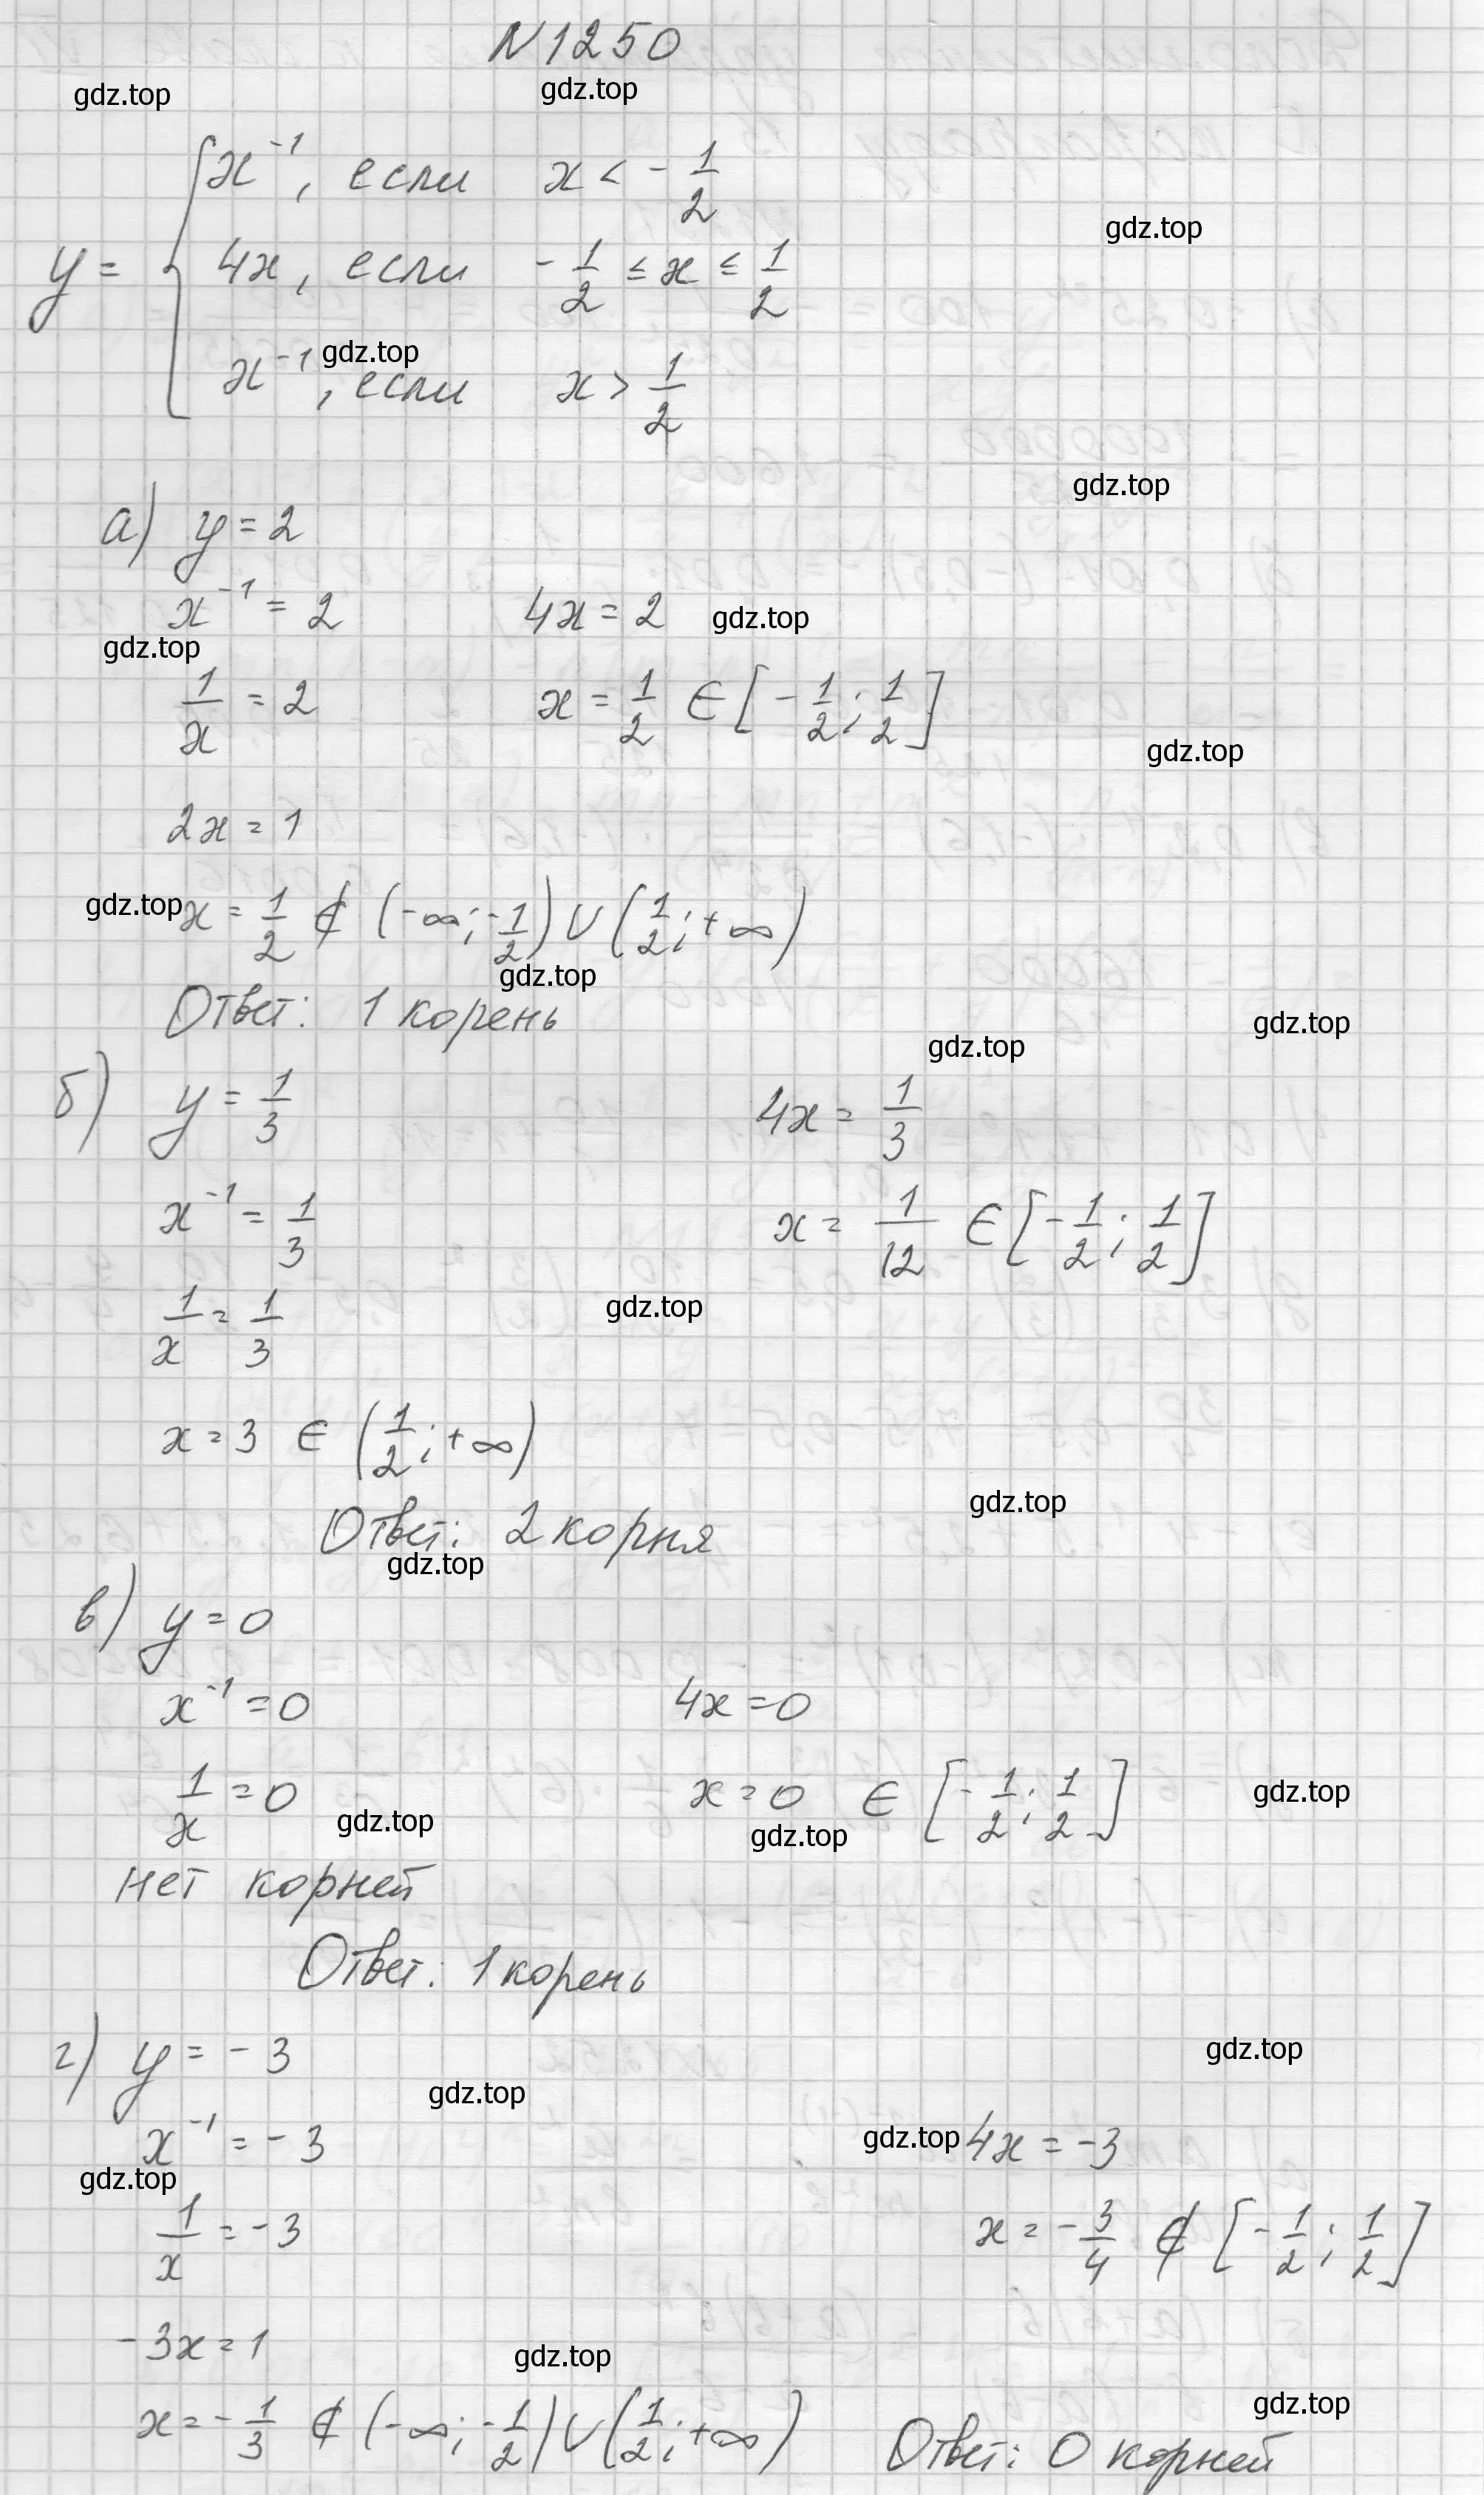 N 1250
gdz.top gdz.top
y = { x⁻¹, если x < -1/2
gdz.top
4x, если -1/2 ≤ x ≤ 1/2
gdz.top
x⁻¹, если x > 1/2
gdz.top
а) y = 2
x⁻¹ = 2 4x = 2 gdz.top
gdz.top
1/x = 2 x = 1/2 ∈ [-1/2; 1/2]
gdz.top
2x = 1
gdz.top x = 1/2 ∉ (-∞; -1/2) ∪ (1/2; +∞)
gdz.top
Ответ: 1 корень
gdz.top
gdz.top
б) y = 1/3 4x = 1/3
x⁻¹ = 1/3 x = 1/12 ∈ [-1/2; 1/2]
1/x = 1/3 gdz.top
x = 3 ∈ (1/2; +∞)
gdz.top
Ответ: 2 корня
gdz.top
в) y = 0
x⁻¹ = 0 4x = 0
1/x = 0 x = 0 ∈ [-1/2; 1/2] gdz.top
gdz.top gdz.top
нет корней
Ответ: 1 корень
г) y = -3 gdz.top
gdz.top
x⁻¹ = -3 gdz.top 4x = -3
gdz.top
1/x = -3 x = -3/4 ∉ [-1/2; 1/2]
-3x = 1 gdz.top
gdz.top
x = -1/3 ∉ (-∞; -1/2) ∪ (1/2; +∞) Ответ: 0 корней